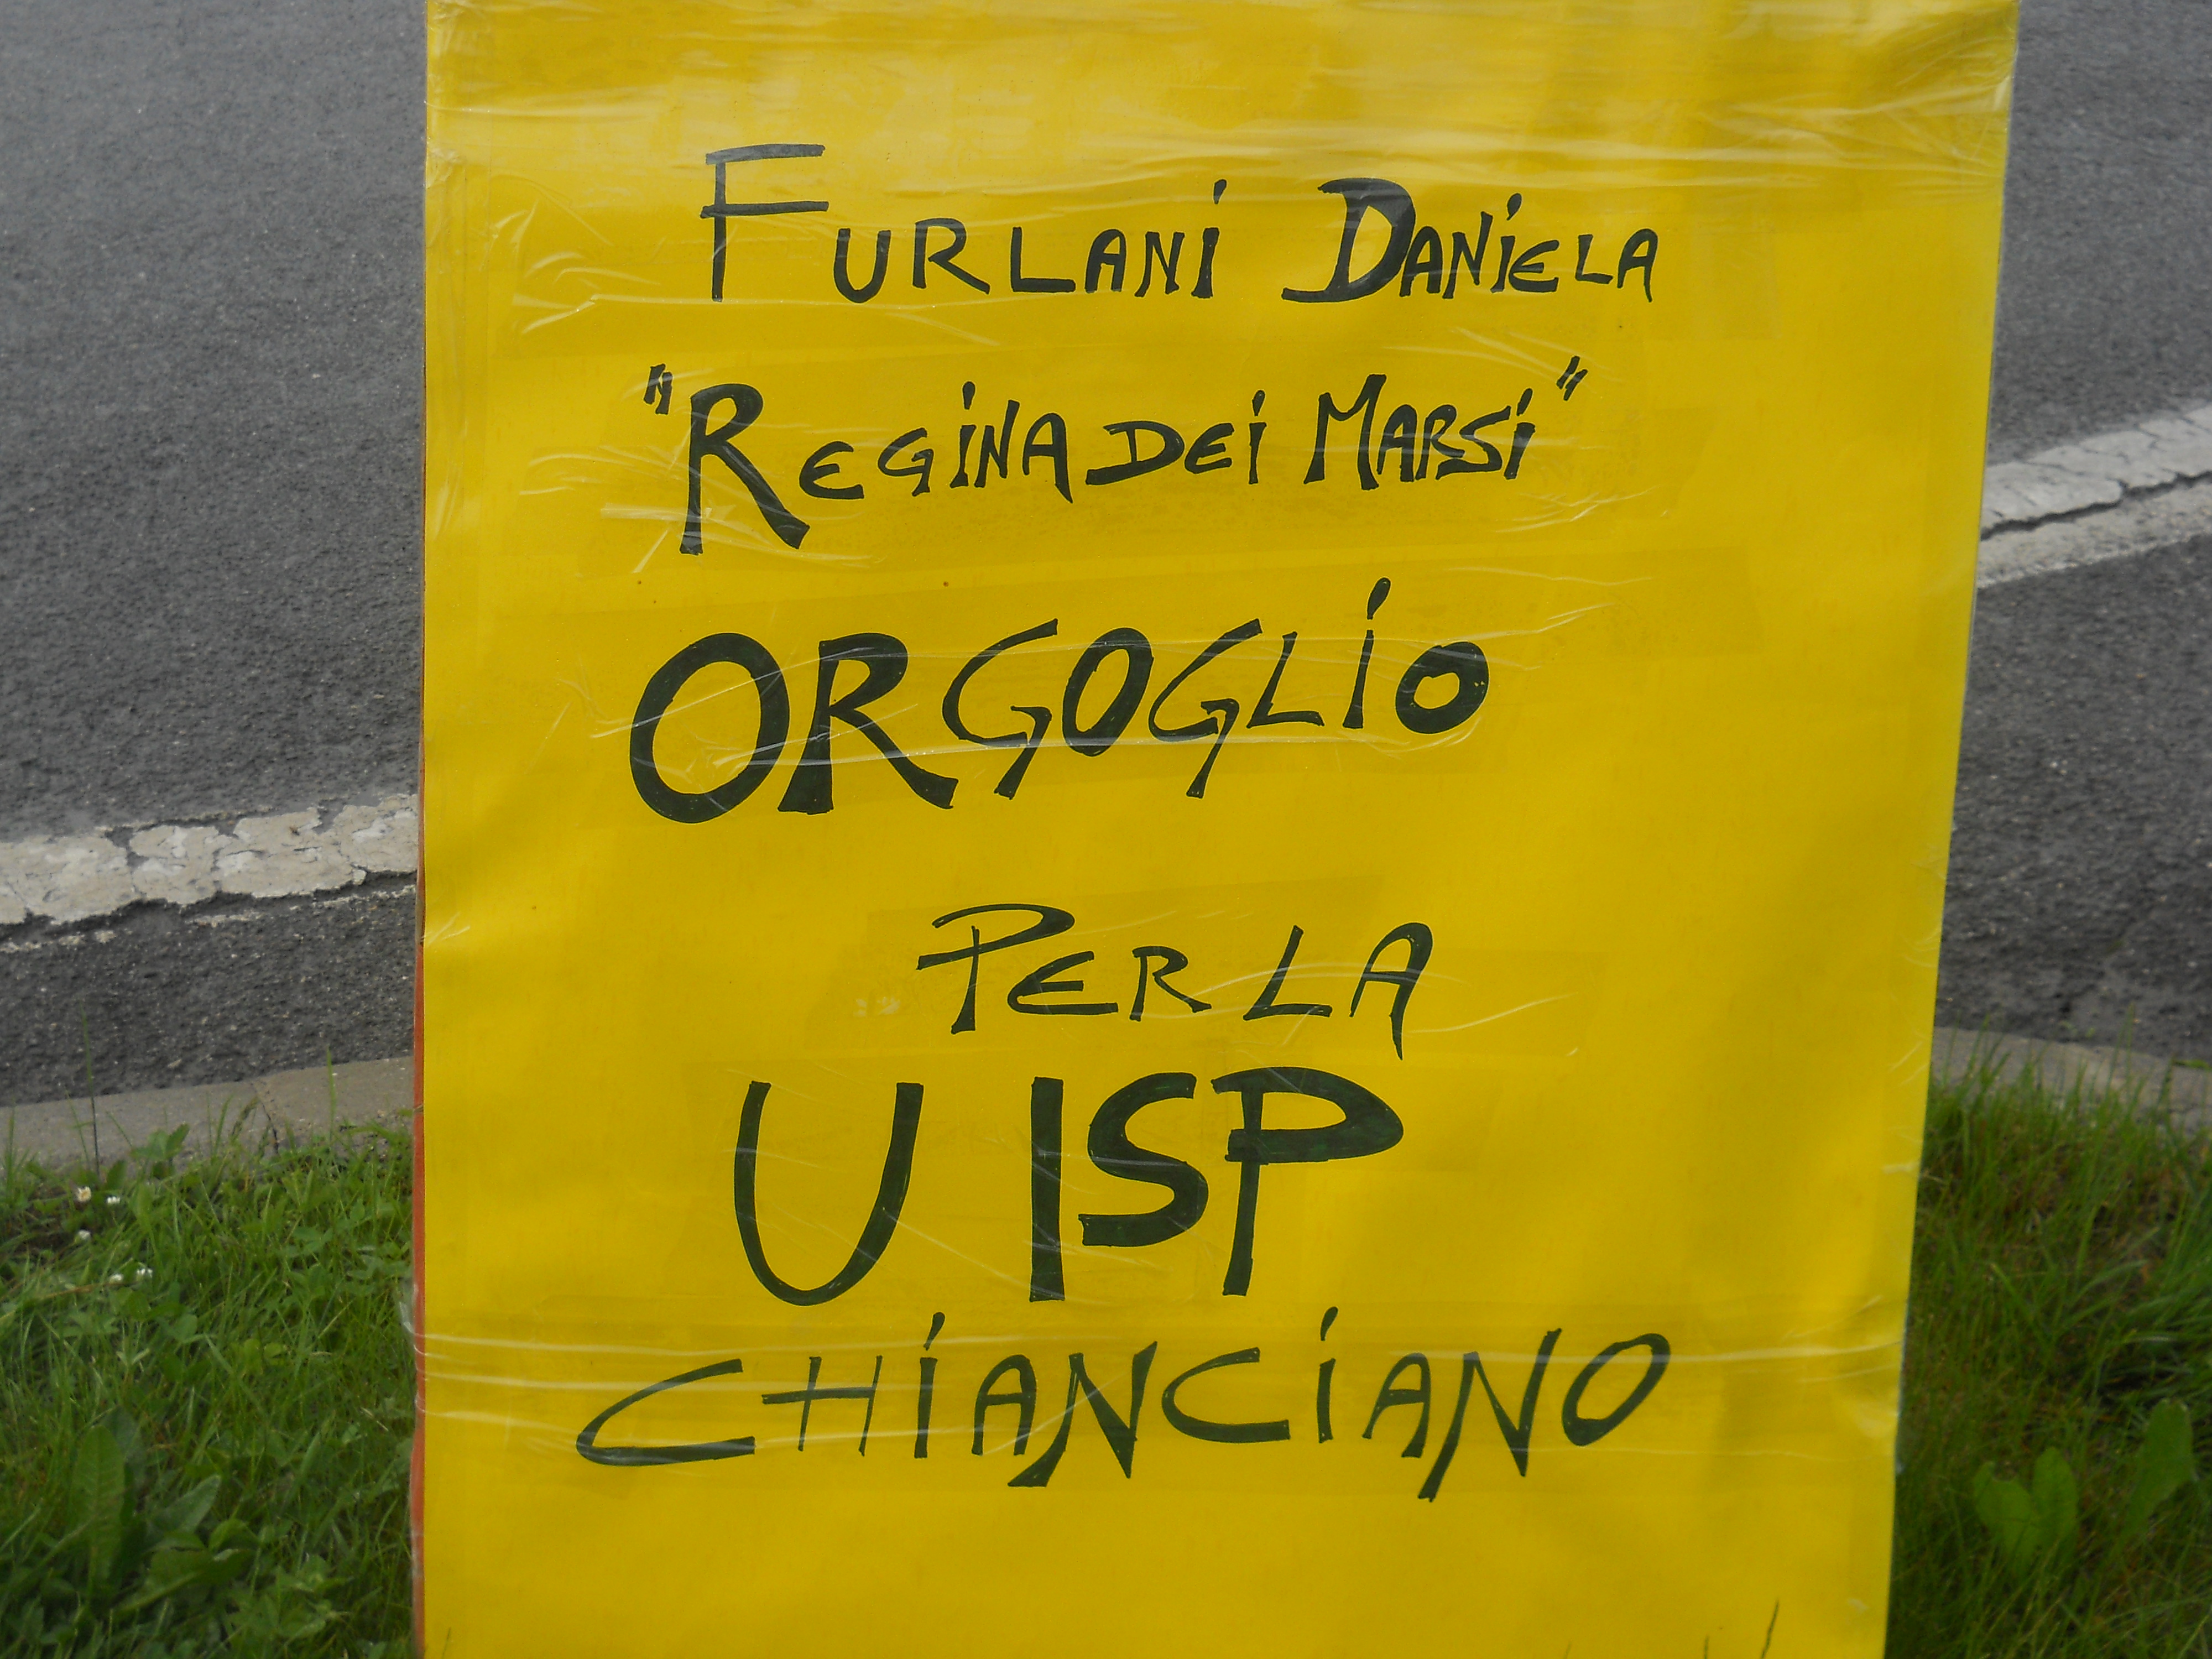 FURLANI DANIELA
"REGINA DEI MARSI"
ORGOGLIO
PER LA
UISP
CHIANCIANO